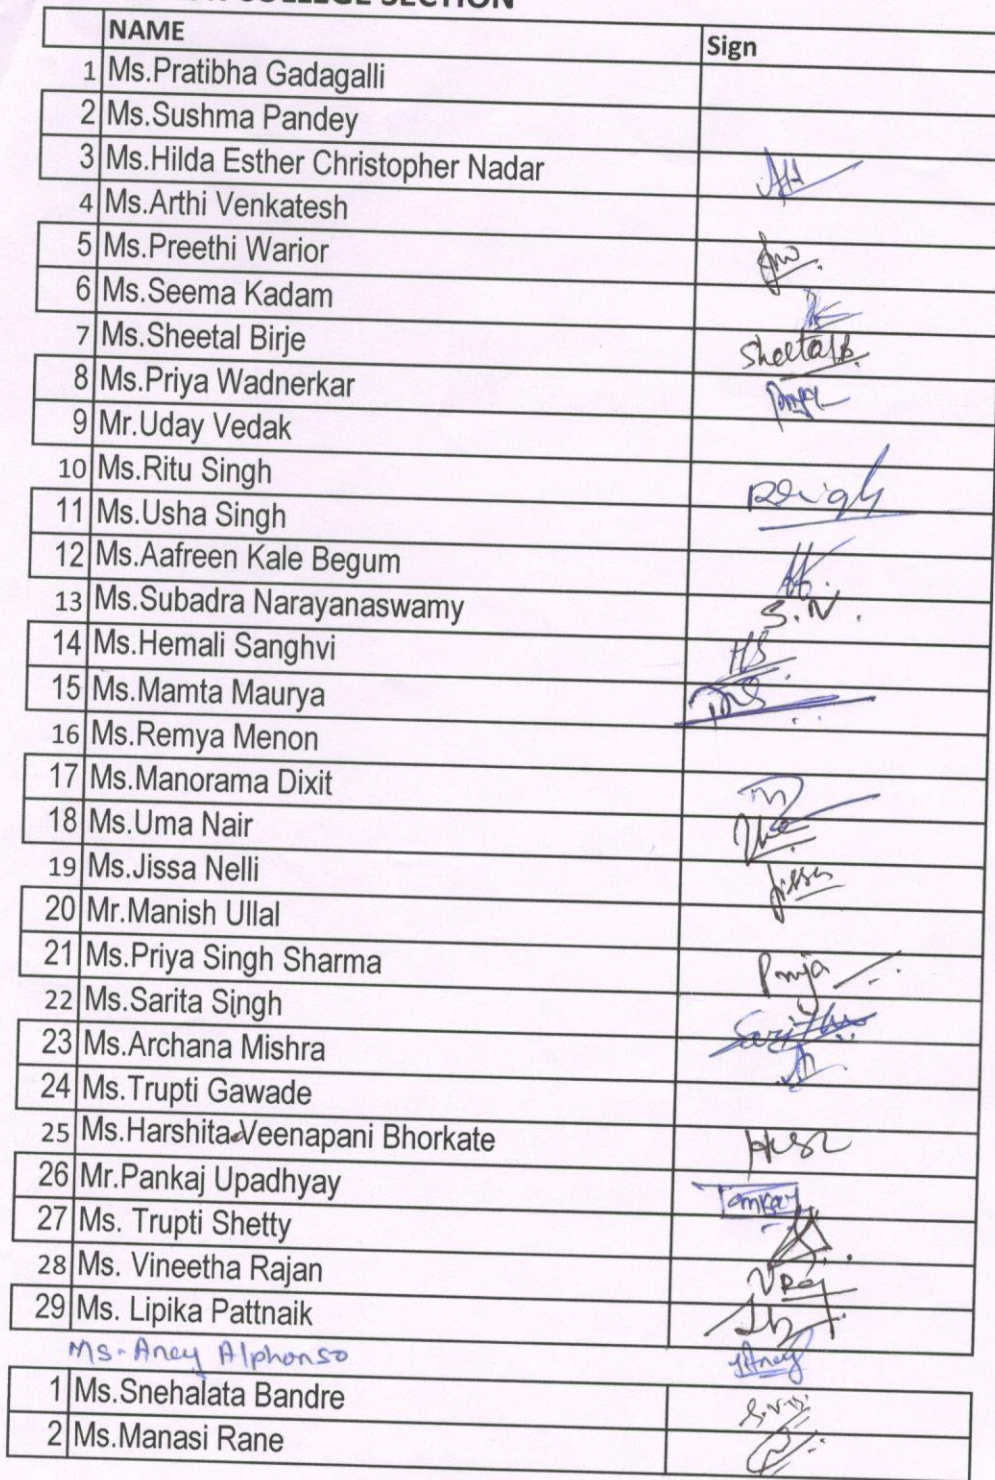 COLLEGE SECTION
NAME Sign
1 Ms.Pratibha Gadagalli
2 Ms.Sushma Pandey
3 Ms.Hilda Esther Christopher Nadar
4 Ms.Arthi Venkatesh
5 Ms.Preethi Warior
6 Ms.Seema Kadam
7 Ms.Sheetal Birje SheetalB.
8 Ms.Priya Wadnerkar Priya
9 Mr.Uday Vedak
10 Ms.Ritu Singh RSingh
11 Ms.Usha Singh
12 Ms.Aafreen Kale Begum
13 Ms.Subadra Narayanaswamy S.N.
14 Ms.Hemali Sanghvi HS
15 Ms.Mamta Maurya
16 Ms.Remya Menon
17 Ms.Manorama Dixit
18 Ms.Uma Nair
19 Ms.Jissa Nelli Jissa
20 Mr.Manish Ullal
21 Ms.Priya Singh Sharma Priya
22 Ms.Sarita Singh
23 Ms.Archana Mishra
24 Ms.Trupti Gawade
25 Ms.Harshita Veenapani Bhorkate
26 Mr.Pankaj Upadhyay Pankaj
27 Ms. Trupti Shetty
28 Ms. Vineetha Rajan VRaj
29 Ms. Lipika Pattnaik
Ms. Ancy Alphonso Ancy
1 Ms.Snehalata Bandre
2 Ms.Manasi Rane